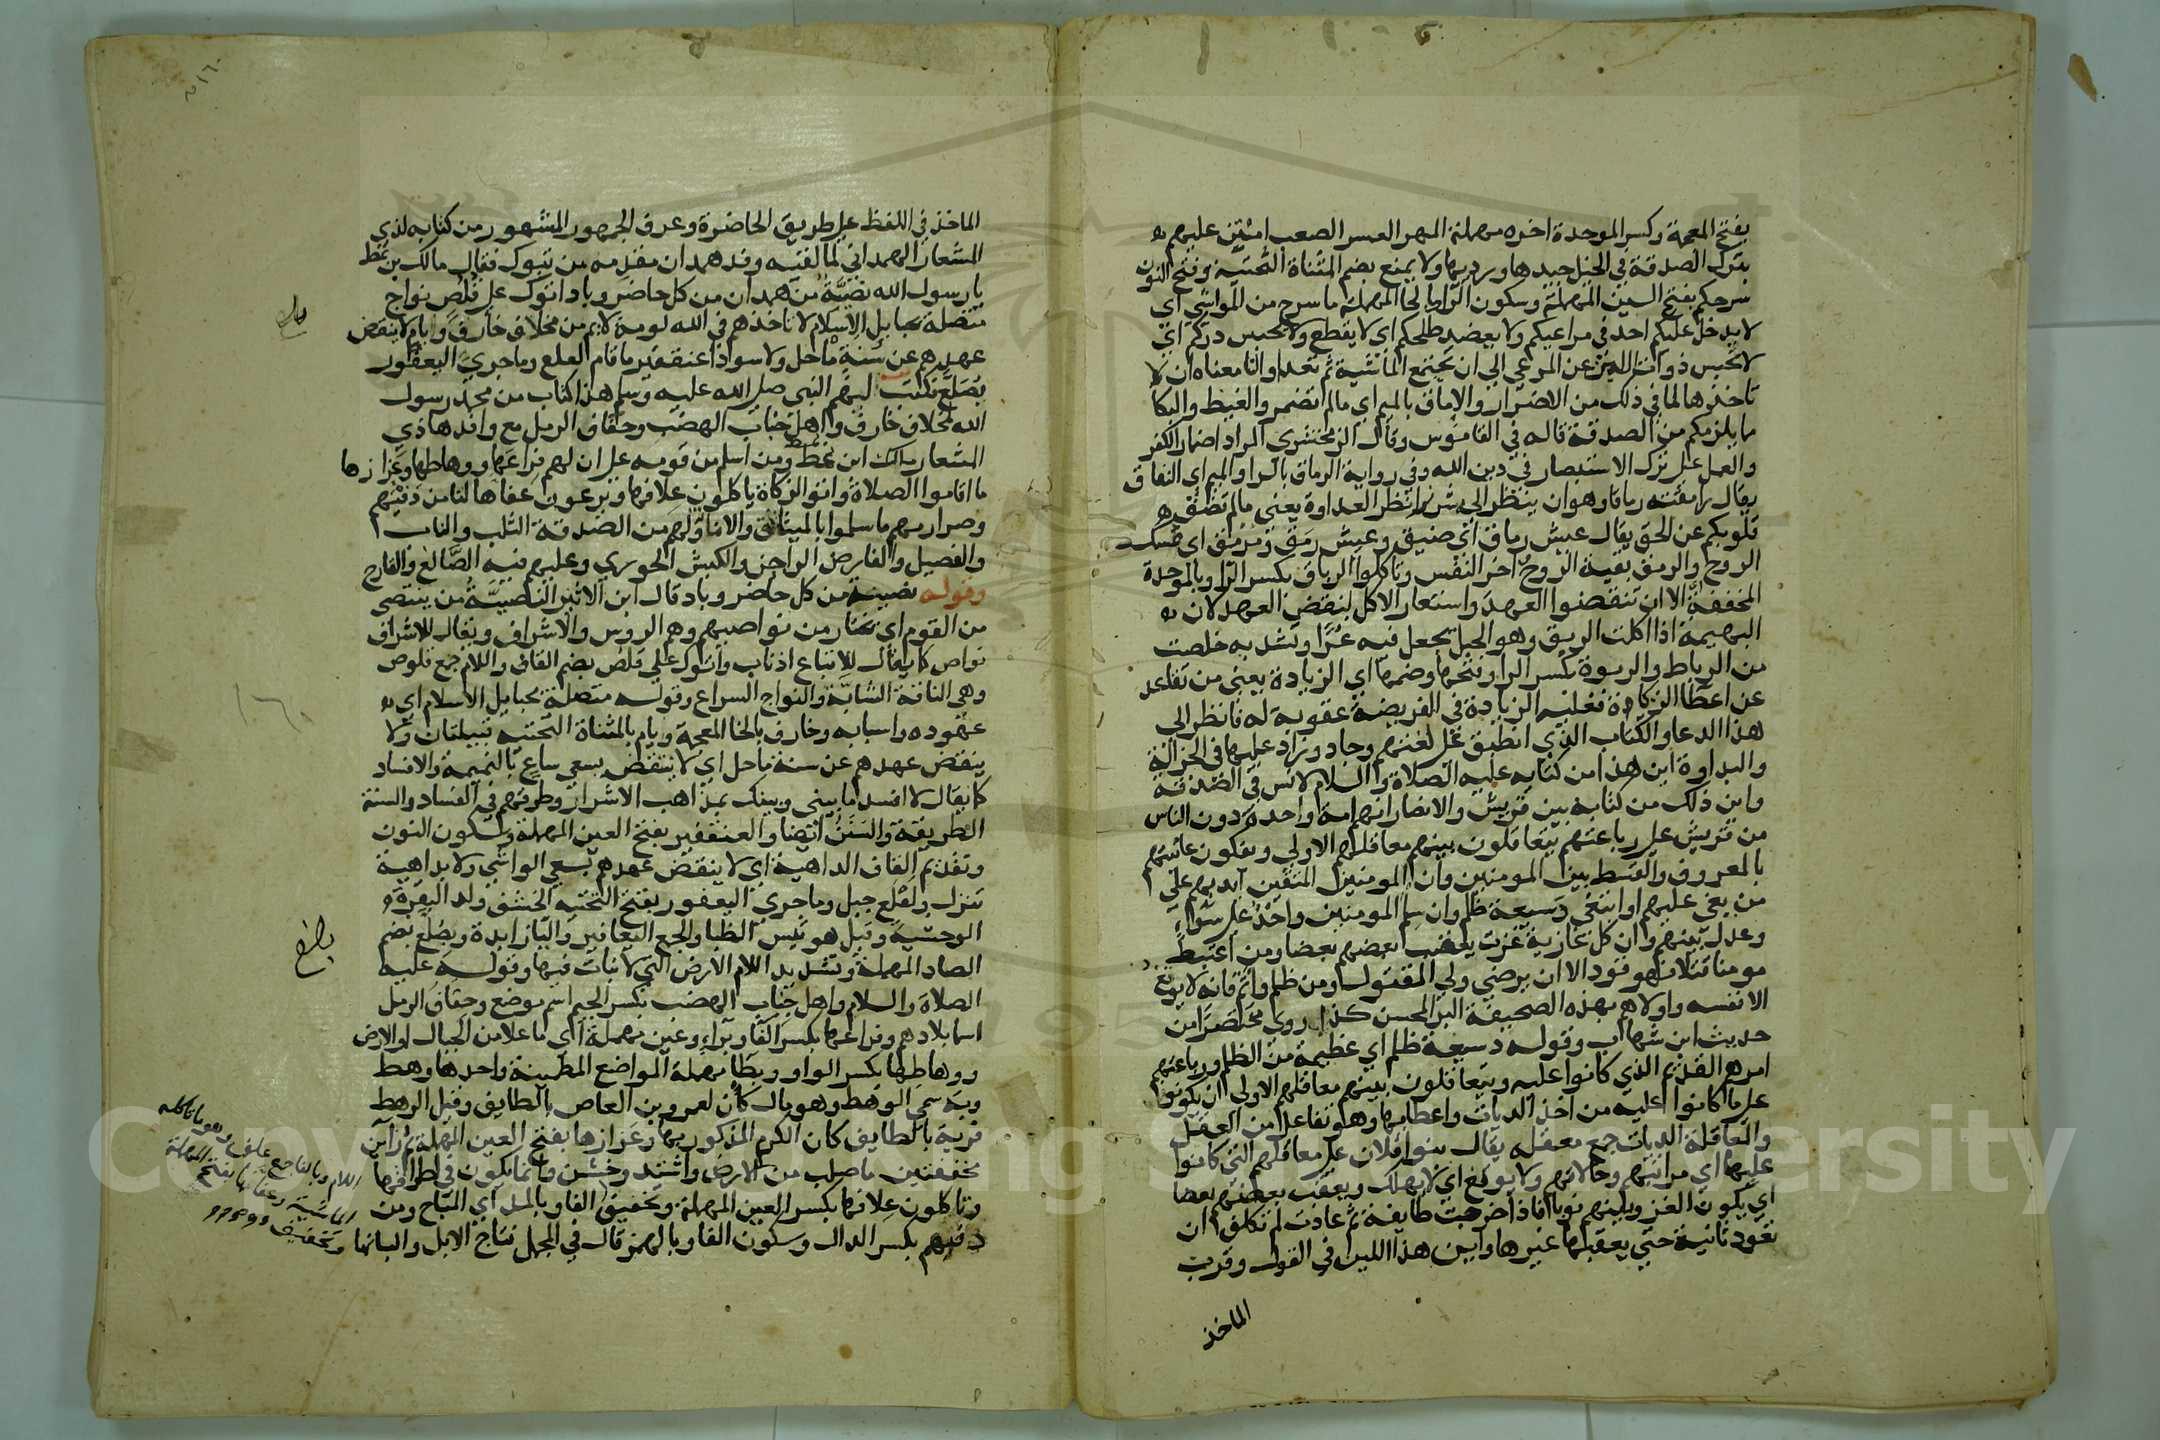 بفتح المعجمة وكسر الموحدة اخره مهملة المهر العسر الصعب امتن عليهم
بترك الصدقة في الخيل جيدها ورديها ولا يمنع بضم المثناة التحتية وفتح النون
سرحكم بفتح السين المهملة وسكون الرا وبالحا المهملة ما سرح من المواشي اي
لا يدخل عليكم احد في مراعيكم ولا يعضد طلحكم اي لا يقطع ولا يحبس دركم اي
لا تحبس ذوات اللبن عن المرعي الي ان تجتمع الماشية ثم تعد اولنا معناه ان لا
تاخذها لما في ذلك من الاضرار والاماق بالميم اي مالم تضمروا الغيظ والبكا
ما يلزمكم من الصدقة قاله في القاموس وقال الزمخشري المراد اضمار الكفر
والعمل علي ترك الاستبصار في دين الله وفي رواية الرماق بالرا والميم اي النفاق
يقال رامقته رماقا وهو ان ينظر الي شزرا نظر العداوة يعني مالم تضق
قلوبكم عن الحق يقال عيش رماق اي ضيق وعيش رمق ومرمق اي يمسك
الروح والرمق بقية الروح اخر النفس وتاكلوا الرباق بكسر الرا وبالموحدة
المخففة الا ان تنقضوا العهد واستعار الاكل لنقض العهد لان
البهيمة اذا اكلت الربق وهو الحبل يجعل فيه عرا وتشد به خلصت
من الرباط والربوة بكسر الرا وفتحها وضمها اي الزيادة يعني من تقاعد
عن اعطا الزكاة فعليه الزيادة في الفريضة عقوبة له فانظر الي
هذا الدعا والكتاب الذي انطبق علي لغتهم وجاد وزاد عليها في الجزالة
والبداوة اين هذا من كتابه عليه الصلاة والسلام لانس في الصدقة
واين ذلك من كتابه بين قريش والانصار انهم امة واحدة دون الناس
من قريش علي رباعتهم يتعاقلون بينهم معاقلهم الاولي ويفكون عانيهم
بالمعروف والقسط بين المومنين وان المومنين المتقين ايديهم علي
من بغي عليهم او ابتغي دسيعة ظلم وان سلم المومنين واحد علي سواء
وعدل بينهم وان كل غازية غزت يعقب بعضهم بعضا ومن اعتبط
مومنا قتلا فهو قود الا ان يرضي ولي المقتول ومن ظلم واثم فانه لا يوتغ
الا نفسه واولاهم بهذه الصحيفة البر المحسن كذا روي مختصرا من
حديث ابن شهاب وقوله دسيعة ظلم اي عظيمة من الظلم ورباعتهم
امرهم القديم الذي كانوا عليه ويتعاقلون بينهم معاقلهم الاولى اي يكونون
علي ما كانوا عليه من اخذ الديات واعطايها وهو تفاعل من العقل
والعاقلة الديات جمع معقله يقال بنوا فلان علي معاقلهم التي كانوا
عليها اي مراتبهم وحالاتهم ولا يوتغ اي لا يهلك ويعقب بعضهم بعضا
اي يكون الغزو بينهم نوبا فاذا خرجت طايفة ثم عادت لم تكلف ان
تعود ثانية حتي يعقبها غيرها واين هذا اللين في القول وقرب
الماخذ
الماخذ في اللفظ علي طريق الحاضرة وعرف الجمهور المشهور من كتابه لذي
المشعار الهمداني لما لقيه وفد همدان مقدمه من تبوك فقال مالك بن نمط
يا رسول الله نصية من همدان من كل حاضر وباد اتوك علي قلص نواج
متصلة بحبايل الاسلام لا تاخذهم في الله لومة لايم من مخلاف خارف ويام لا ينقض
عهدهم عن سنة ماحل ولا سواد اعنقفير ما قام لعلع وما جري اليعفور
بصلع فكتب لهم النبي صلي الله عليه وسلم هذا كتاب من محمد رسول
الله لمخلاف خارف واهل جناب الهضب وحقاف الرمل مع وافدها ذي
المشعار مالك ابن نمط ومن اسلم من قومه علي ان لهم فراعها ووهاطها وعزازها
ما اقاموا الصلاة واتوا الزكاة ياكلون علافها ويرعون عفاها لنا من دفئهم
وصرامهم ما سلموا بالميثاق والامانة ولهم من الصدقة الثلب والناب
والفصيل والفارض الداجن والكبش الحوري وعليهم فيه الصالغ والقارح
وقوله نصية من كل حاضر وباد قال ابن الاثير النصية من ينتصي
من القوم اي تختار من نواصيهم وهم الروس والاشراف ويقال للاشراف
نواص كما يقال للاتباع اذناب واتوك علي قلص بضم القاف واللام جمع قلوص
وهي الناقة الشابة والنواج السراع وقوله متصلة بحبايل الاسلام اي
عهوده واسبابه وخارف بالخا المعجمة ويام بالمثناة التحتية قبيلتان ولا
ينقض عهدهم عن سنة ماحل اي لا ينتقض بسعي ساع بالنميمة والافساد
كما يقال لا افسد ما بيني وبينك بمذاهب الاشرار وطرقهم في الفساد والسنة
الطريقة والسنن ايضا والعنقفير بفتح العين المهملة وسكون النون
وتقديم القاف الداهية اي لا ينقض عهدهم بسعي الواشي ولا بداهية
تنزل ولعلع جبل وما جري اليعفور بفتح التحتية الخشف ولد البقرة
الوحشية وقيل هو تيس الظبا والجمع اليعافير واليا زايدة وبصلع بضم
الصاد المهملة وتشديد اللام الارض التي لا نبات فيها وقوله عليه
الصلاة والسلام واهل جناب الهضب بكسر الجيم اسم موضع وحقاف الرمل
اسما بلادهم وفراعها بكسر الفا وبراء وعين مهملة اي ما علا من الجبال او الارض
ووهاطها بكسر الواو وبطا مهملة المواضع المطمينة واحدها وهط
وبه سمي الوهط وهو مال كان لعمرو بن العاص بالطايف وقيل الوهط
قرية بالطايف كان الكرم المذكور بها وعزازها بفتح العين المهملة ثم زاين
مخففتين ما صلب من الارض واشتد وخشن وانما يكون في اطرافها
وتاكلون علافها بكسر العين المهملة وتخفيف الفا وبالمد اي المباح ومن
دفئهم بكسر الدال وسكون الفا وبالهمز قال في المجمل نتاج الابل والبانها و
اللام وبالفا جمع علف وهو ما تاكله
الماشية وعفاها بفتح المهملة
وتخفيف
بلغ